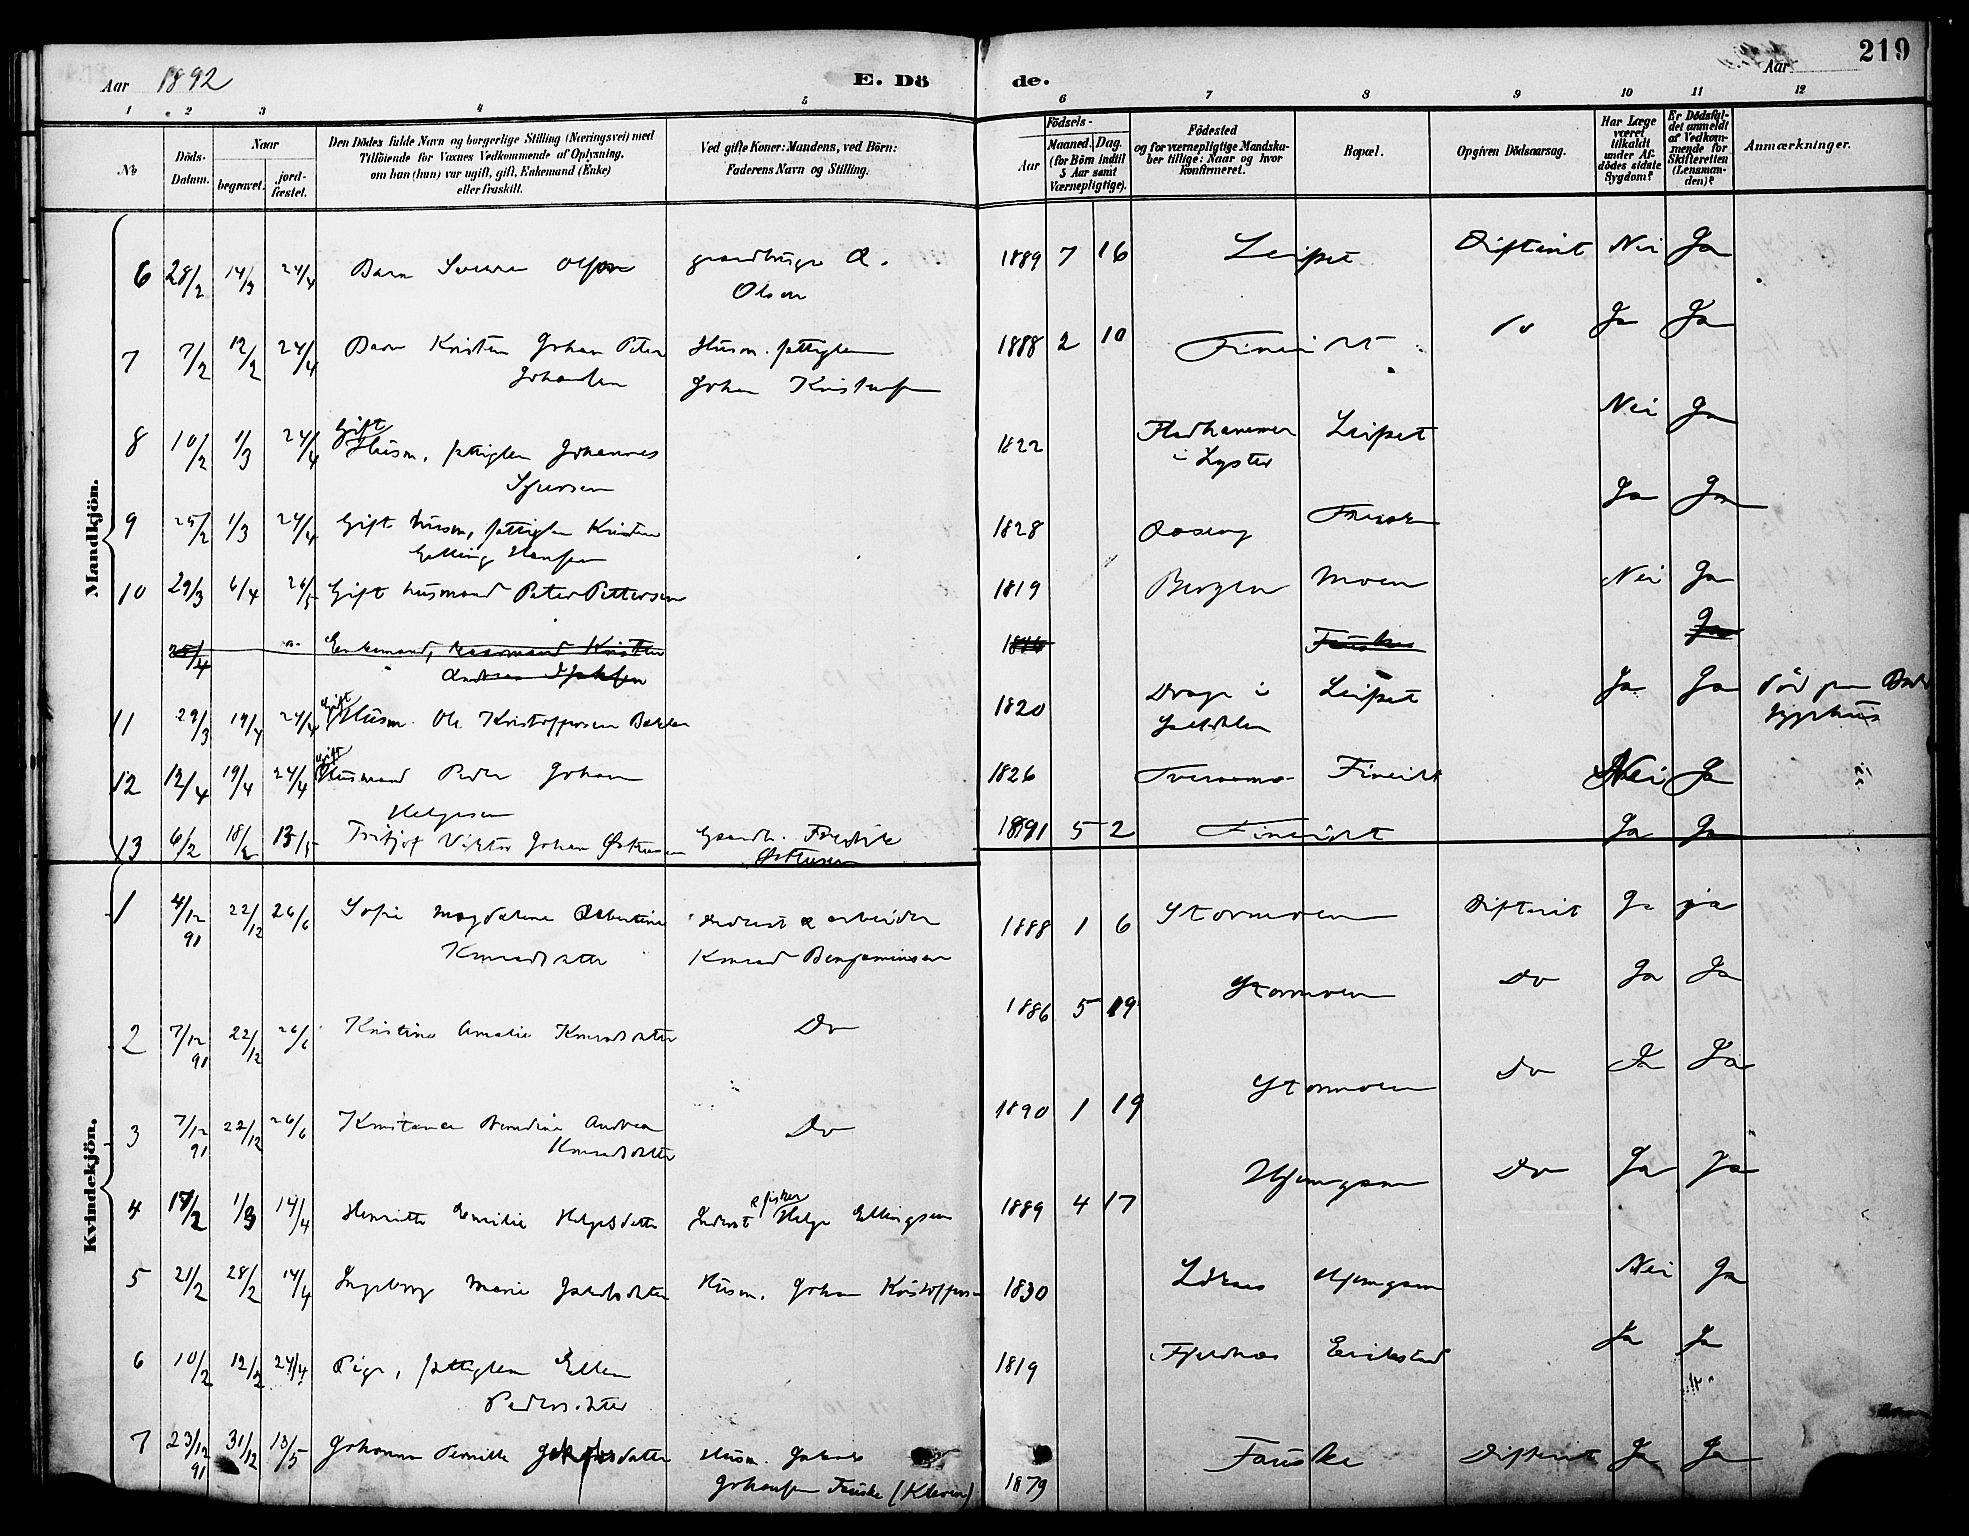 Aar 1892
E. Döde.
Aar
219
1 2 3 4 5 6 7 8 9 10 11 12
No
Döds-Datum.
Naar
begravet.
jordfæstet.
Den Dödes fulde Navn og borgerlige Stilling (Næringsvei) med
Tilföiende for Voxnes Vedkommende af Oplysning,
om han (hun) var ugift, gift, Enkemand (Enke)
eller fraskilt.
Ved gifte Koner: Mandens, ved Börn:
Faderens Navn og Stilling.
Födsels-
Aar
Maaned. Dag.
(for Börn indtil
5 Aar samt
Værnepligtige).
Födested
og for værnepligtige Mandskaber tillige: Naar og hvor
konfirmeret.
Bopæl.
Opgiven Dödsaarsag.
Har Læge
været
tilkaldt
under Afdödes sidste
Sygdom?
Er Dödsfaldet anmeldt
af Vedkommende for
Skifteretten
(Lensmanden)?
Anmærkninger.
Mandkjön.
6 28/2 14/3 24/4 Barn Sverre Olsen gaardbruger O. 1889 7 16 Leifset Difterit Nei Ja
Olsen
7 7/2 12/2 24/4 Barn Kristen Johan Peter Husm. fattiglem 1888 2 10 Fineidet Do Ja Ja
Johansen Johan Kristensen
8 10/2 1/3 24/4 Gift Husm. fattiglem Johannes 1822 Leifset Nei Ja
Sjursen i Lyster
9 25/2 1/3 24/4 Gift husm, fattiglem Kristen 1828 Ja Ja
Elling Hansen
10 29/3 6/4 26/5 Gift husmand Peter Pettersen 1819 Bergen Moen Nei Ja
25/4 Enkemand, Kristen Fauske Ja
11 29/3 19/4 24/4 Gift Husm. Ole Kristoffersen Bakken 1820 i Leifset Ja Ja Död paa Bodö
Saltdalen sygehus
12 12/4 19/4 24/4 Gift Husmand Peder Johan 1826 Tveraamo Fineidet Nei Ja
Helgesen
13 6/2 18/2 13/5 Fritjof Viktor Johan Østensen Gaardb. Fredrik 1891 5 2 Fineidet Ja Ja
Østensen
Kvindekjön.
1 4/12 91 22/12 26/6 Sofie Magdalene Albertine Inderst & arbeider 1888 1 6 Stormoen Difterit Ja ja
Konradsdatter Konrad Benjaminsen
2 7/12 91 22/12 26/6 Kristine Amalie Konradsdatter Do 1886 5 19 Stormoen Do Ja Ja
3 7/12 91 22/12 26/6 Konstance Berndine Andrea Do 1890 1 19 Stormoen Do Ja Ja
Konradsdatter
4 17/2 1/3 14/4 Henritte Emilie Helgesdatter Inderst & fisker Helge Ellingsen 1889 4 17 Hjemgam Do Ja Ja
5 21/2 28/2 14/4 Ingeborg Marie Jakobsdatter Husm. Johan Kristoffersen 1830 Hjemgam Nei Ja
6 10/2 12/2 24/4 Pige, fattiglem Ellen 1819 Fjeldnes Erikstad Ja Ja
Pedersdatter
7 23/12 91 31/12 13/5 Johanna Pernille Jakobsdatter Husm. Jakob 1879 Fauske Difterit Ja Ja
Johansen Fauske (Kleven)